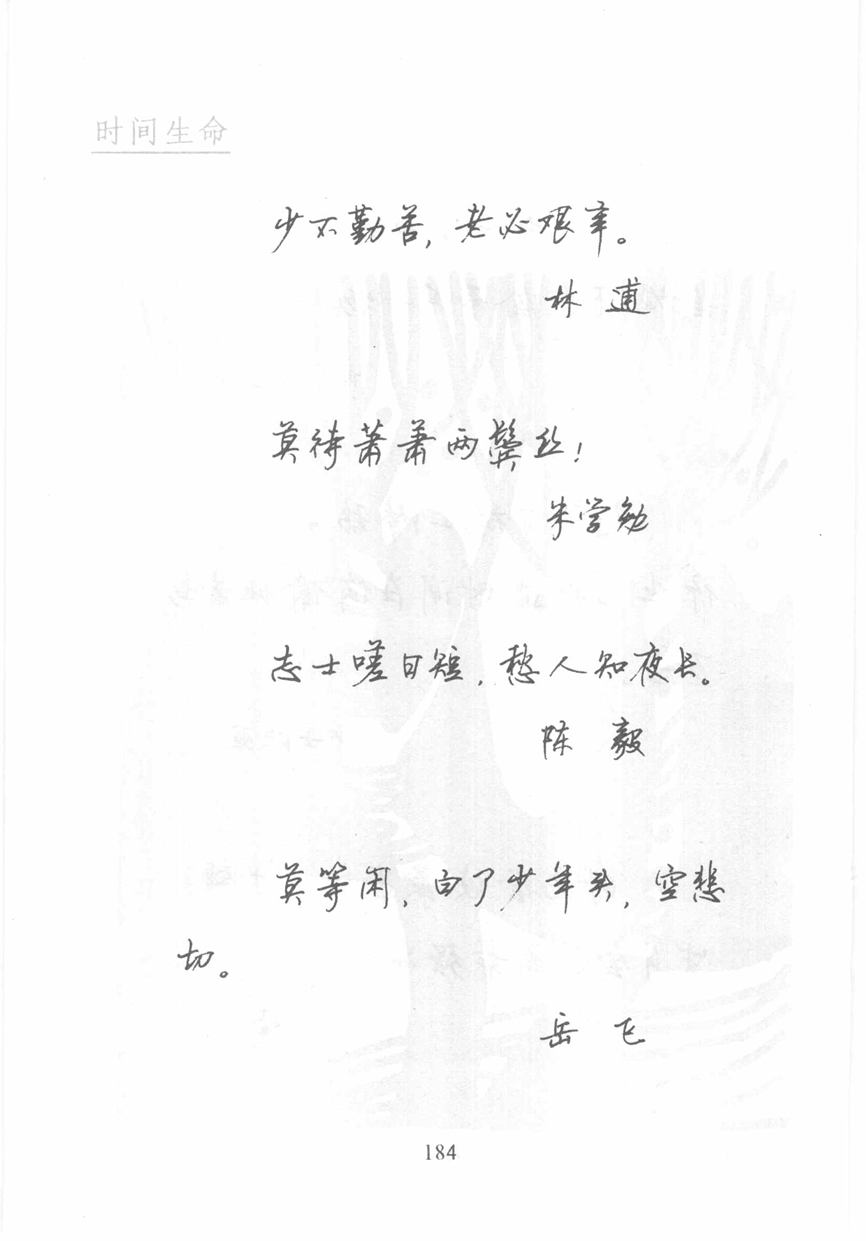 时间生命
少不勤苦，老必艰辛。
林逋
莫待萧萧两鬓丝！
朱学勉
志士嗟日短，愁人知夜长。
陈毅
莫等闲，白了少年头，空悲
切。
岳飞
184